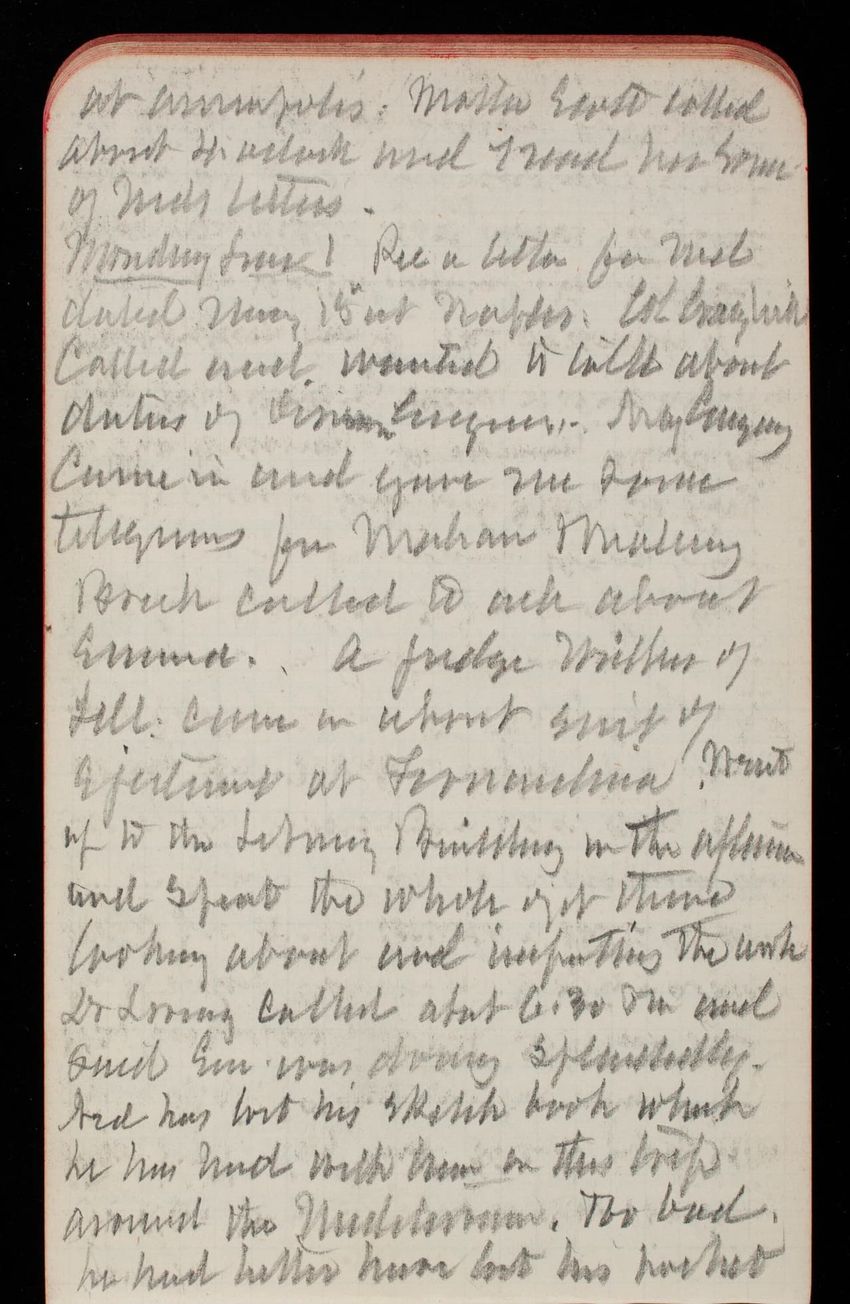 at annapolis. Mattie Scott called
about 4 o'clock and I read her some
of Neds letters.
Monday June 1 Rec a letter from Ned
dated May 15" at Naples. Col Craighill
Called and wanted to talk about
duties of Division Engineer. Gregory
Came in and gave me some
telegrams for
Breck called to ask about
Emma. A Judge of
Ill. came in about suit of
Ejectment at Fernandina. Went
up to the Library Building in the afternoon
and spent the whole of it there
looking about and inspecting the work
Dr Loring called abt 6:30 Pm and
said Em was doing splendidly.
Ned has lost his sketch book which
he has had with him on this trip
around the Mediterranean. Too bad.
he had better have lost his pocket